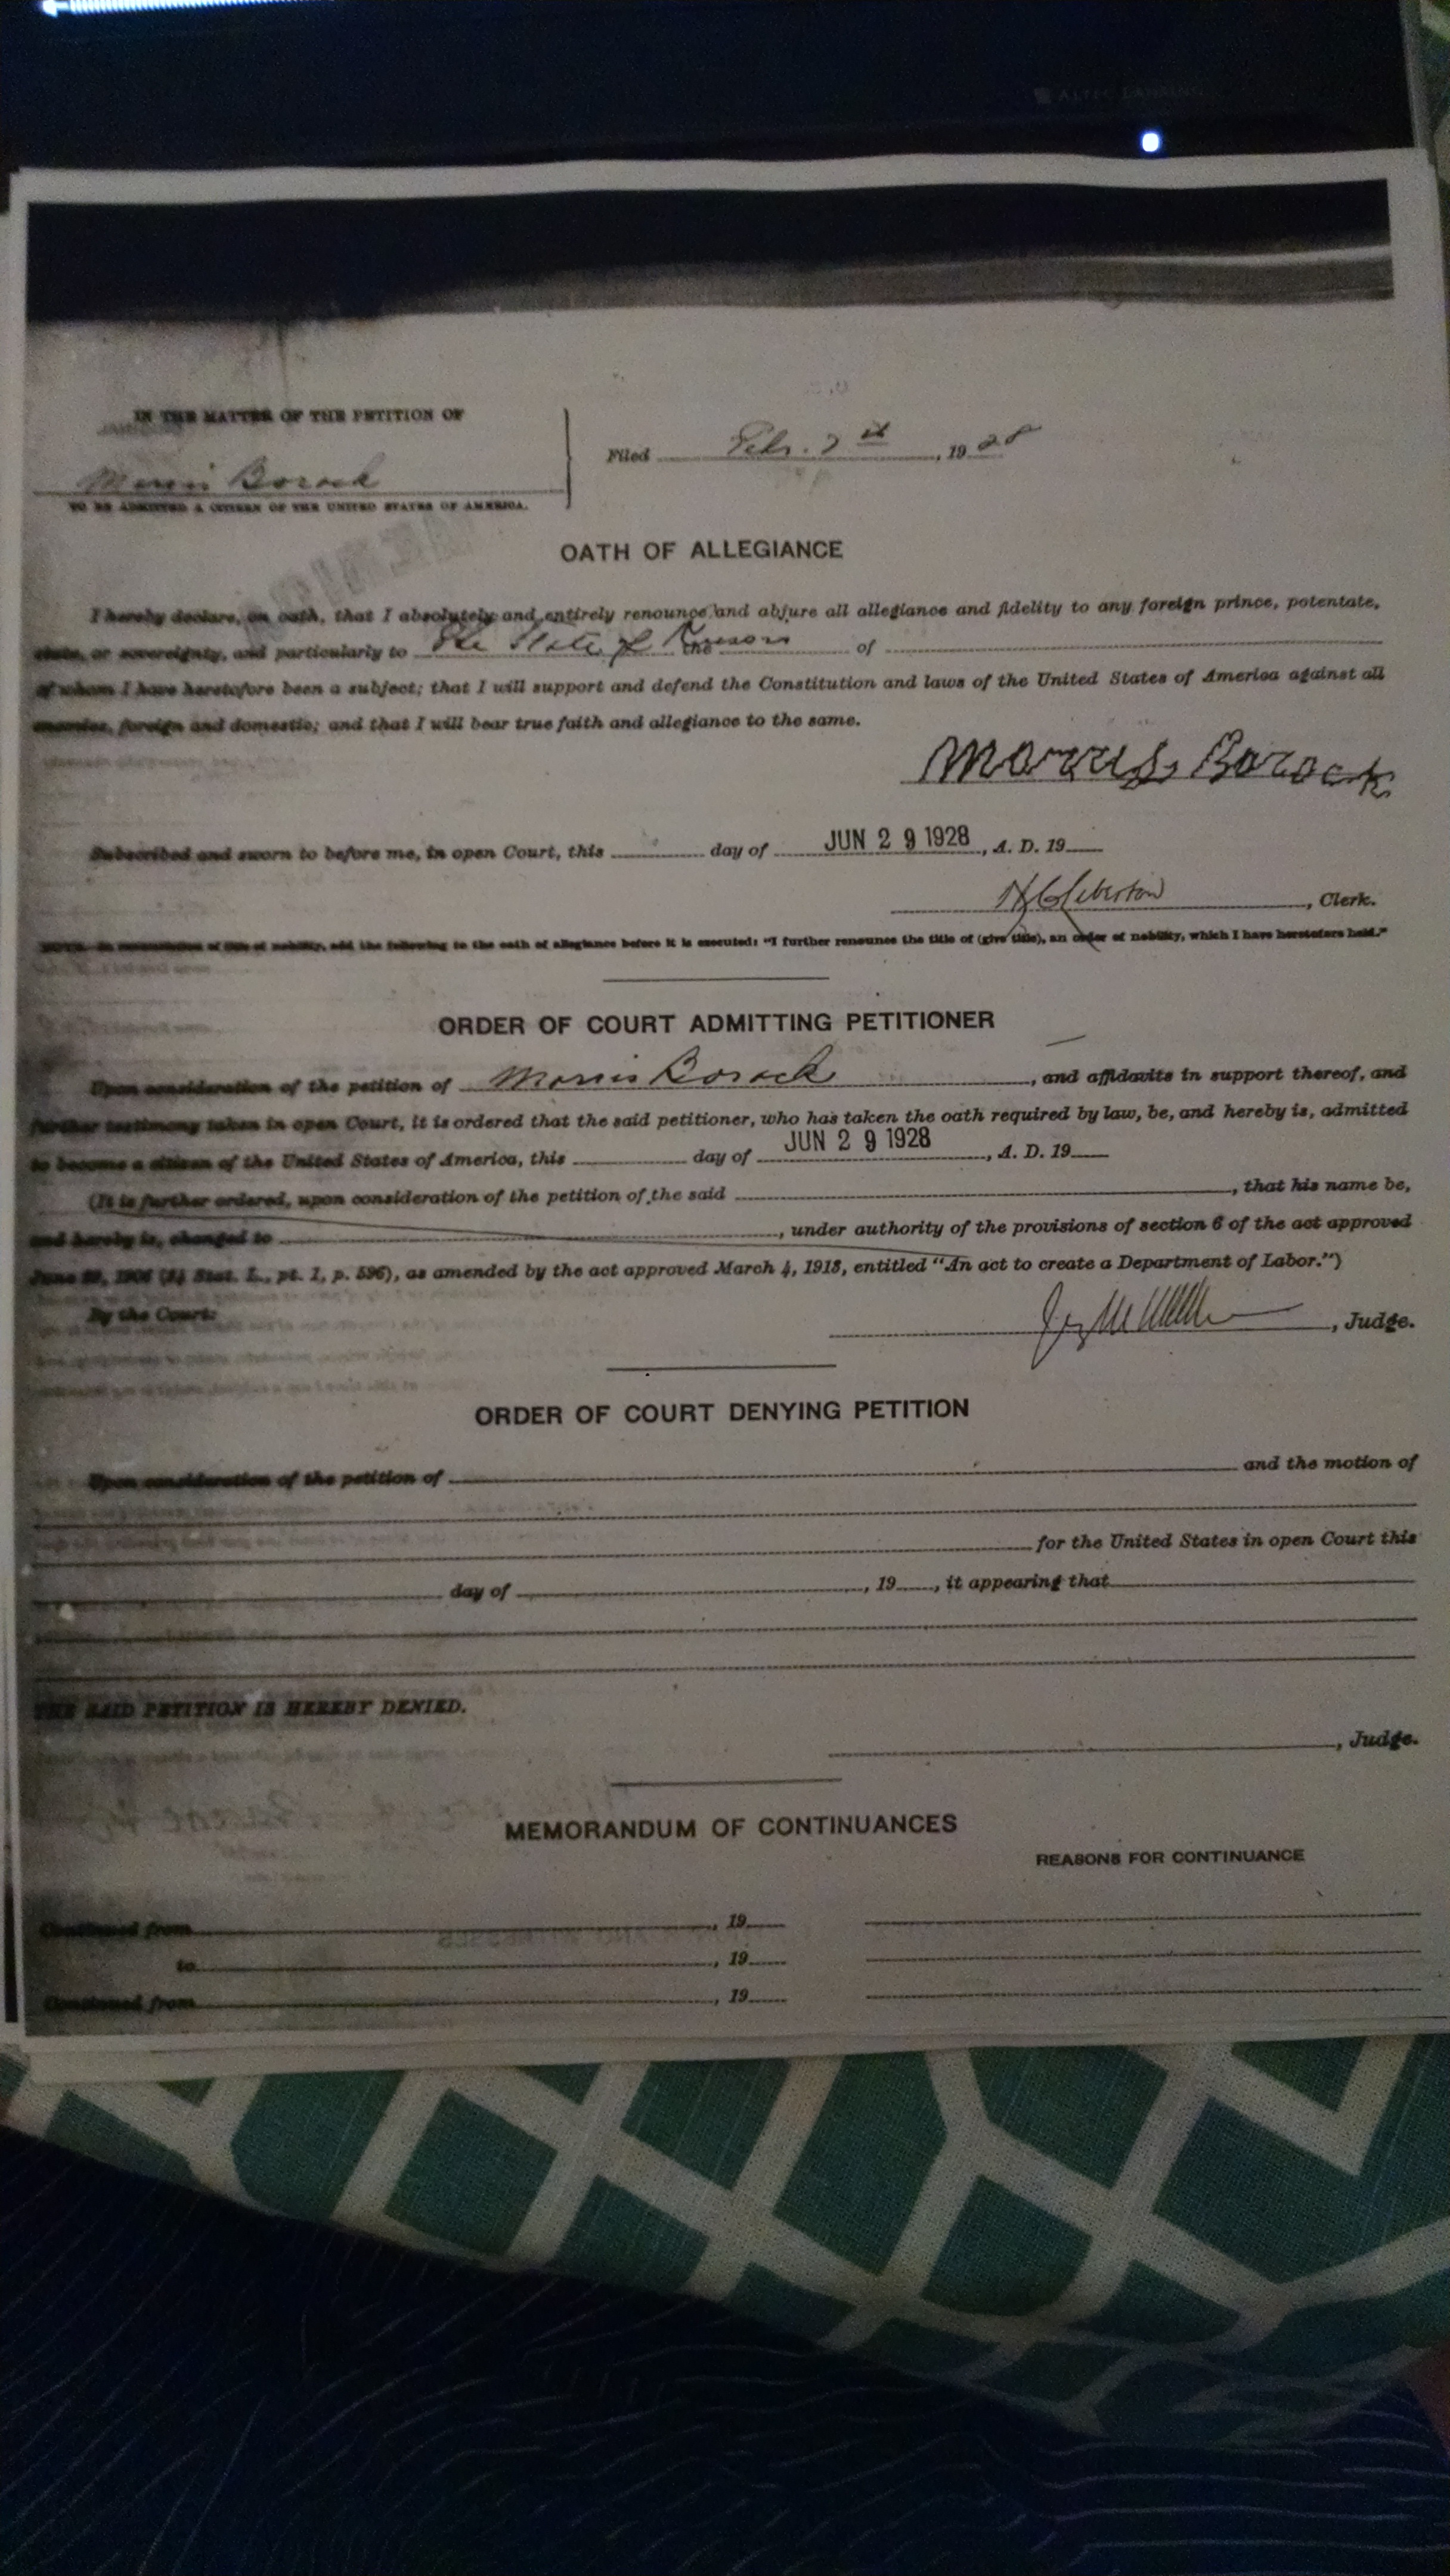 ALTEC LANSING
IN THE MATTER OF THE PETITION OF
Morris Borock
TO BE ADMITTED A CITIZEN OF THE UNITED STATES OF AMERICA.
Filed Feb. , 1928
OATH OF ALLEGIANCE
I hereby declare, on oath, that I absolutely and entirely renounce and abjure all allegiance and fidelity to any foreign prince, potentate,
state, or sovereignty, and particularly to The State of the of
of whom I have heretofore been a subject; that I will support and defend the Constitution and laws of the United States of America against all
enemies, foreign and domestic; and that I will bear true faith and allegiance to the same.
Morris Borock
Subscribed and sworn to before me, in open Court, this day of JUN 29 1928, A. D. 19
, Clerk.
NOTE.—In renunciation of title of nobility, add the following to the oath of allegiance before it is executed: "I further renounce the title of (give title), an order of nobility, which I have heretofore held."
ORDER OF COURT ADMITTING PETITIONER
Upon consideration of the petition of Morris Borock, and affidavits in support thereof, and
further testimony taken in open Court, it is ordered that the said petitioner, who has taken the oath required by law, be, and hereby is, admitted
to become a citizen of the United States of America, this day of JUN 29 1928, A. D. 19
(It is further ordered, upon consideration of the petition of the said , that his name be,
and hereby is, changed to , under authority of the provisions of section 6 of the act approved
June 29, 1906 (34 Stat. L., pt. 1, p. 596), as amended by the act approved March 4, 1913, entitled "An act to create a Department of Labor.")
By the Court:
, Judge.
ORDER OF COURT DENYING PETITION
Upon consideration of the petition of and the motion of
for the United States in open Court this
day of , 19 , it appearing that
THE SAID PETITION IS HEREBY DENIED.
, Judge.
MEMORANDUM OF CONTINUANCES
REASONS FOR CONTINUANCE
Continued from , 19
to , 19
Continued from , 19